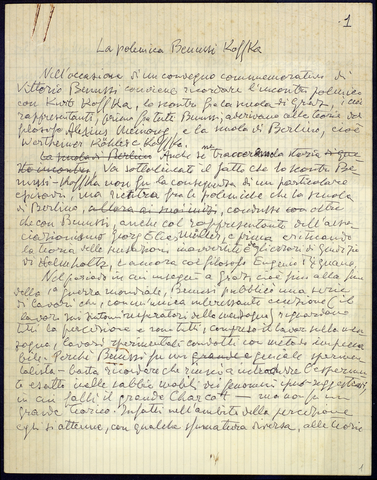 1
La polemica Benussi Koffka
Nell'occasione di un convegno commemorativo di
Vittorio Benussi conviene ricordare l'incontro polemico
con Kurt Koffka, lo scontro fra la scuola di Graz, i cui
rappresentanti, primo fra tutti Benussi, aderivano alla teoria del
filosofo Alexius Meinong, e la scuola di Berlino, cioè
Wertheimer Köhler e Koffka.
La scuola di Berlino Anche se la storia di
Va sottolineato il fatto che lo scontro Be-
nussi-Koffka non fu la conseguenza di un particolare
episodio, ma rientra fra le polemiche che la scuola
di Berlino, condusse oltre
che con Benussi, anche col rappresentante dell'asso-
ciazionismo Georg Elias Müller, e prima criticando
la teoria della
di Helmholtz, e ancora col filosofo Eugenio Rignano.
Nel periodo in cui insegnò a Graz, cioè fino alla fine
della 1a guerra mondiale, Benussi pubblicò una serie
di lavori che, con un'unica interessante eccezione (il
lavoro sui sintomi respiratori della menzogna) riguardano
tutti la percezione e sono tutti, compreso il lavoro sulla men-
zogna, lavori sperimentali condotti con metodo impecca-
bile. Perché Benussi fu un grande e geniale sperimen-
talista — basta ricordare che riuscì a introdurre l'esperimen-
to esatto nelle sabbie mobili dei fenomeni ipno-suggestivi,
in cui fallì il grande Charcot — ma non fu un
grande teorico. Infatti nell'ambito della percezione
egli si attenne, con qualche sfumatura diversa, alle teorie
1